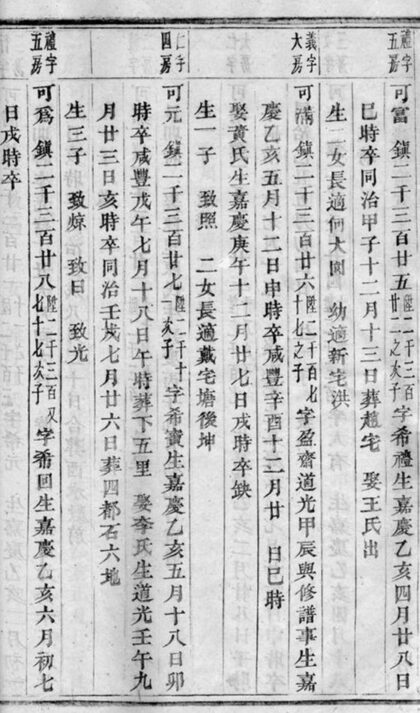 禮字五房 可富 鎮二千三百廿五 陞二千三百廿一之次子 字希禮生嘉慶乙亥四月廿八日
巳時卒同治甲子十二月十三日葬趙宅 娶王氏出
生二女長適何大園 幼適新宅洪
義字大房 可滿 鎮二千三百廿六 陞二千百七十七之子 字盈齋道光甲辰與修譜事生嘉
慶乙亥五月十二日申時卒咸豐辛酉十二月廿 日巳時
娶黃氏生嘉慶庚午十二月廿七日戌時卒缺
生一子 致照 二女長適戴宅塘後坤
仁字四房 可元 鎮二千三百廿七 陞二千十一次子 字希寶生嘉慶乙亥五月十八日卯
時卒咸豐戊午七月十八日午時葬下五里 娶李氏生道光壬午九
月廿三日亥時卒同治壬戌七月廿六日葬四都石六地
生三子 致 致日 致光
禮字五房 可為 鎮二千三百廿八 陞二千三百又七十七次子 字希回生嘉慶乙亥六月初七
日戌時卒